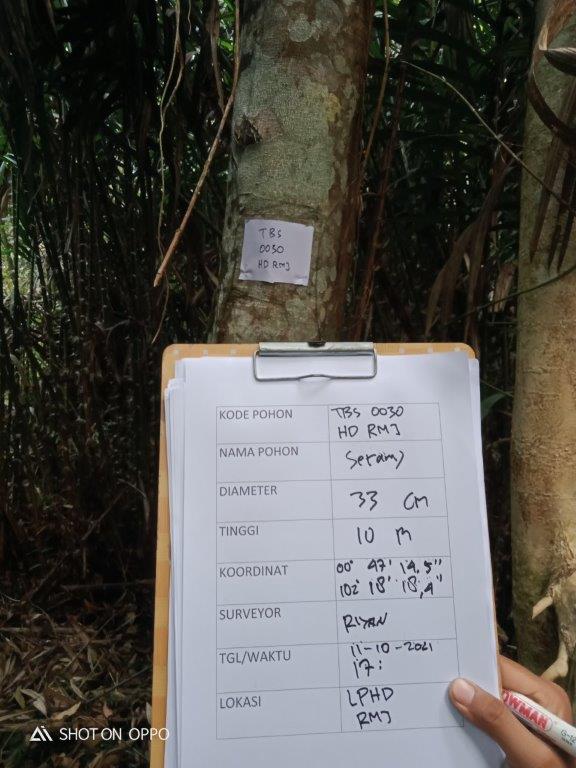 TBS
0030
HD RMJ
KODE POHON TBS 0030
HD RMJ
NAMA POHON
DIAMETER 33 CM
TINGGI 10 M
KOORDINAT 00° 47' 14,5"
102° 18' 18,4"
SURVEYOR RIYAN
TGL/WAKTU 11-10-2021
17:
LOKASI LPHD
RMJ
SNOWMAN
SHOT ON OPPO